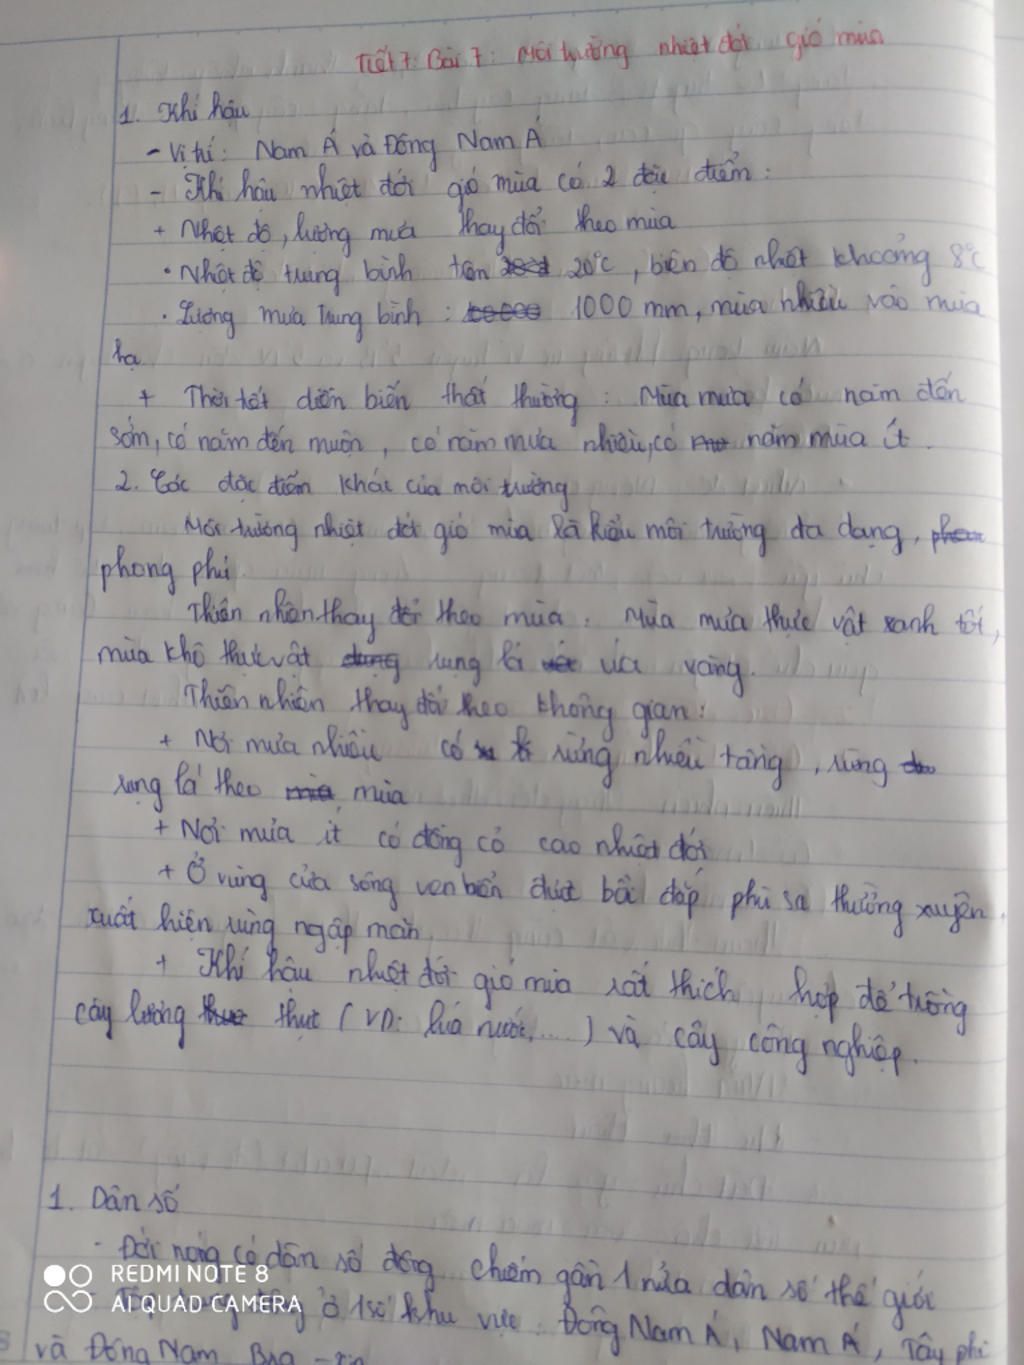 Tiết 7: Bài 7: Môi trường nhiệt đới gió mùa
1. Khí hậu
- Vị trí: Nam Á và Đông Nam Á
- Khí hậu nhiệt đới gió mùa có 2 đặc điểm:
+ Nhiệt độ, lượng mưa thay đổi theo mùa
· Nhiệt độ trung bình trên 20°C, biên độ nhiệt khoảng 8°C
· Lương mưa trung bình: 1000 mm, mưa nhiều vào mùa
hạ
+ Thời tiết diễn biến thất thường: Mùa mưa có năm đến
sớm, có năm đến muộn, có năm mưa nhiều, có năm mưa ít.
2. Các đặc điểm khác của môi trường
Môi trường nhiệt đới gió mùa là kiểu môi trường đa dạng,
phong phú.
Thiên nhiên thay đổi theo mùa: Mùa mưa thực vật xanh tốt,
mùa khô thực vật rụng lá úa vàng.
Thiên nhiên thay đổi theo không gian:
+ Nơi mưa nhiều có rừng nhiều tầng, rừng
rụng lá theo mùa
+ Nơi mưa ít có đồng cỏ cao nhiệt đới
+ Ở vùng cửa sông ven biển được bồi đắp phù sa thường xuyên
xuất hiện rừng ngập mặn.
+ Khí hậu nhiệt đới gió mùa rất thích hợp để trồng
cây lương thực (VD: lúa nước,...) và cây công nghiệp.
1. Dân số
- Đới nóng có dân số đông chiếm gần 1 nửa dân số thế giới
REDMI NOTE 8
AI QUAD CAMERA
ở 1 số khu vực: Đông Nam Á, Nam Á, Tây phi
và Đông Nam Bra-xin